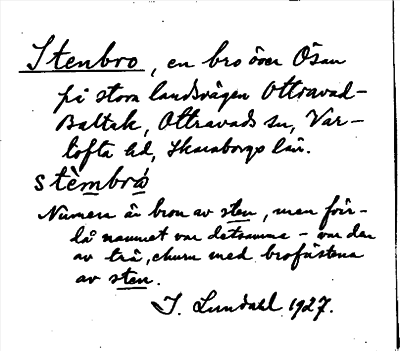 Stenbro, en bro över Ösan
på stora landsvägen Ottravad-
Baltak, Ottravads sn, Var-
tofta hd, Skaraborgs län.
stèmbró
Numera är bron av sten, men för-
 namnet var detsamma - var den
av trä, churu med brofästena
av sten.
J. Lundahl 1927.